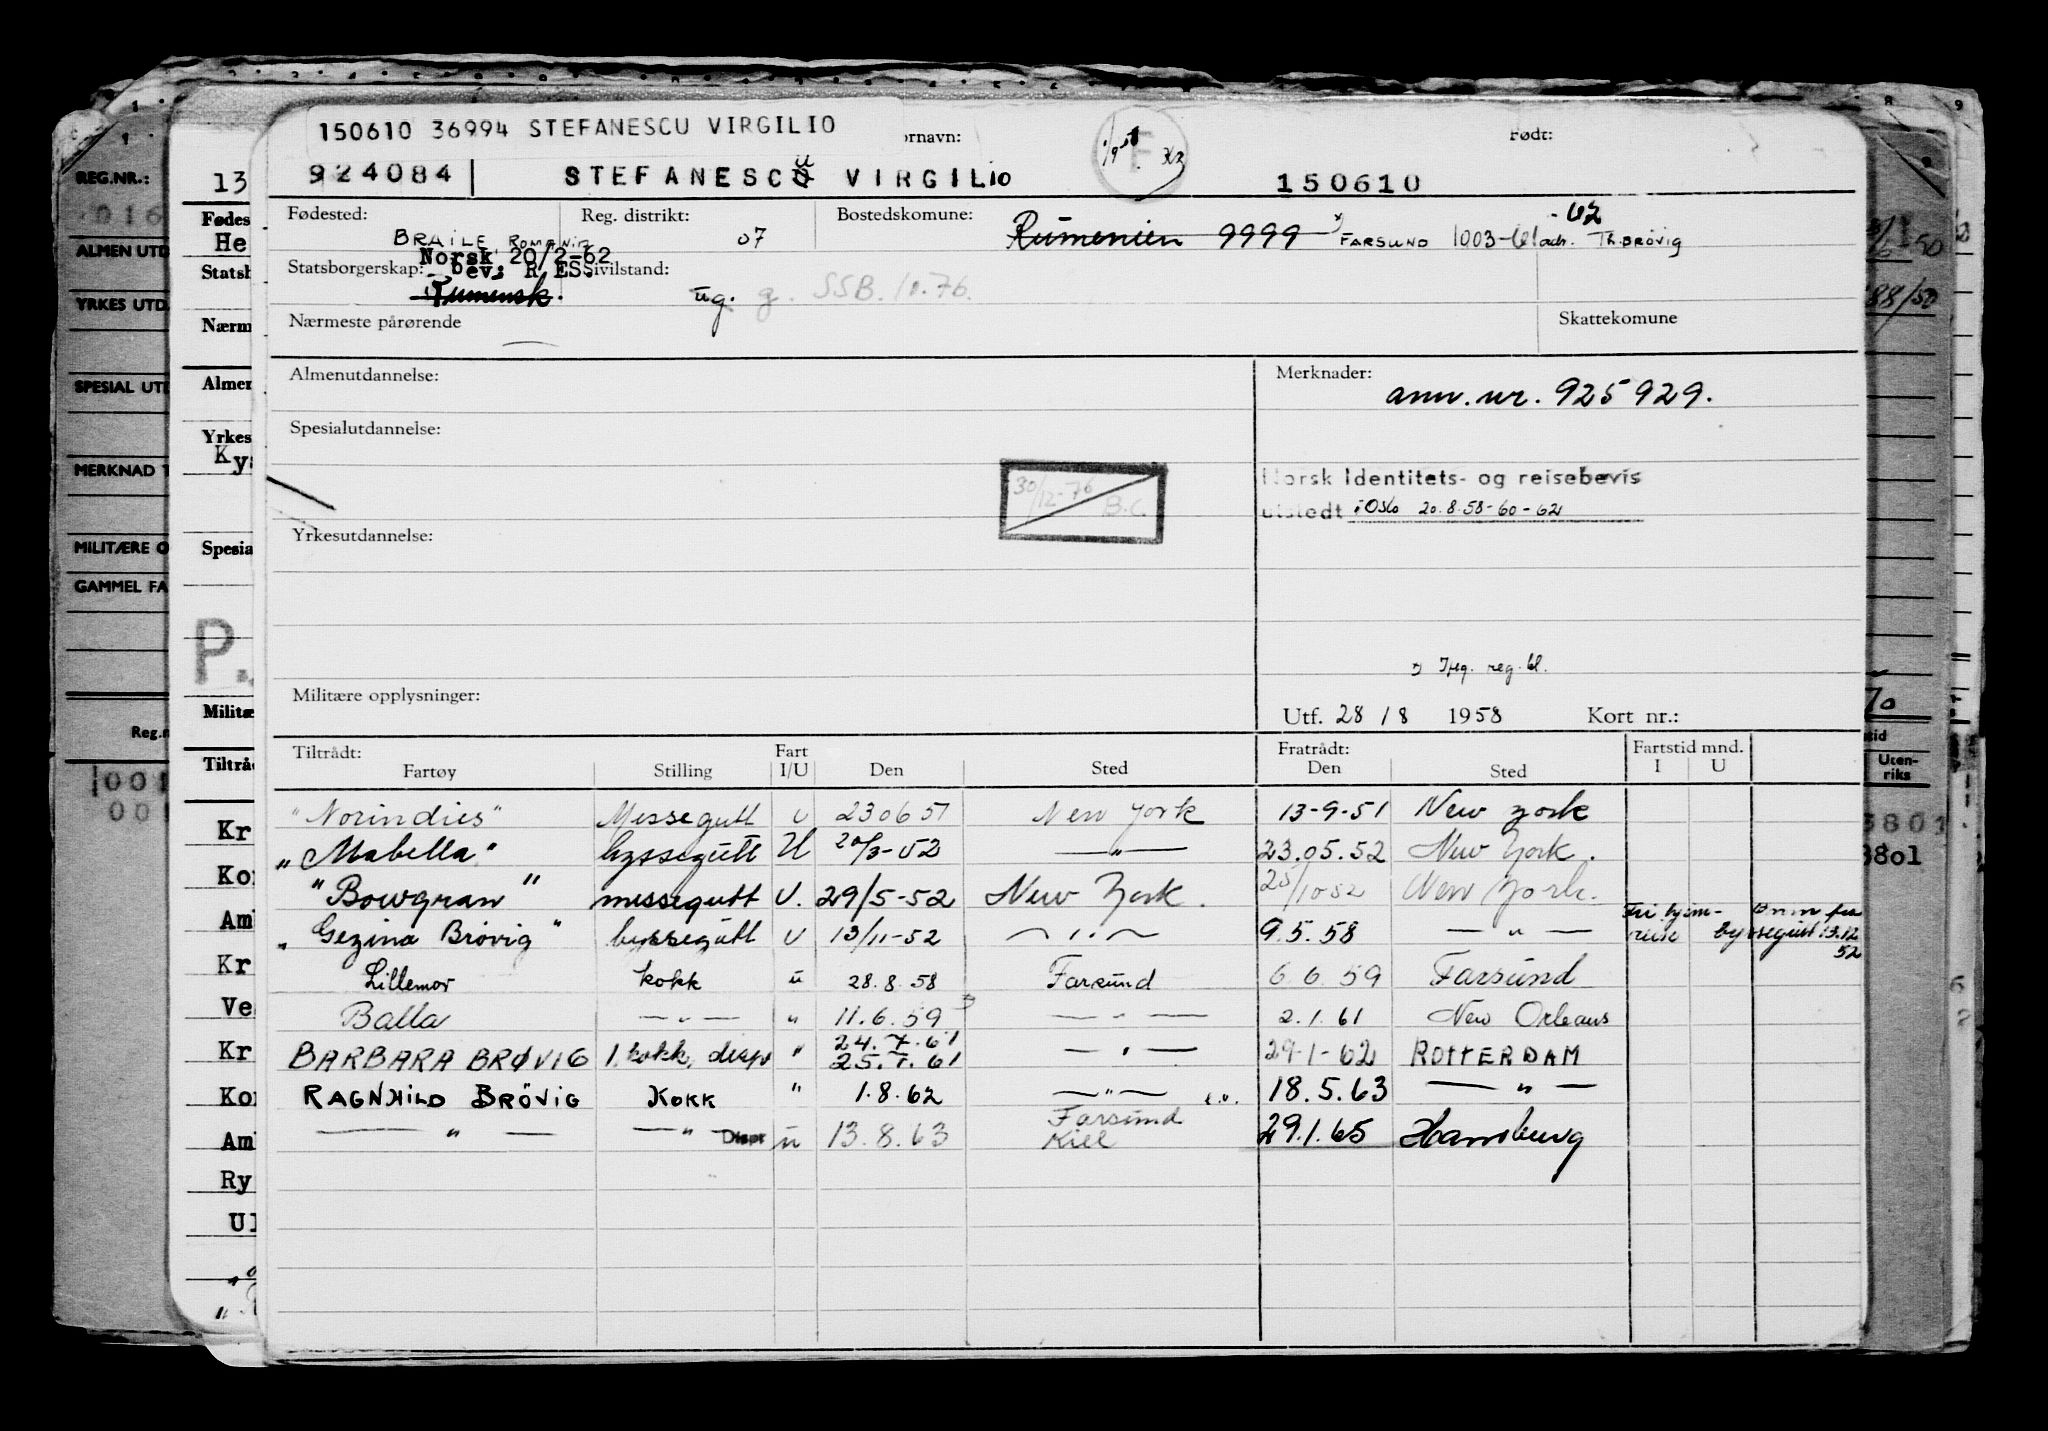 150610 36994 STEFANESCU VIRGILIO
ornavn:
Født:
924084
STEFANESCU VIRGILIO
F
150610
Fødested:
Reg. distrikt:
Bostedskomune:
BRAILE ROMANIA
07
Rumenien 9999
FARSUND 1003-61 adr. Th. BRÖVIG
-62
Norsk 20/2-62
Statsborgerskap:
bev: R ES.
Sivilstand:
Rumensk.
ug. g. SSB. 10.76.
Nærmeste pårørende
Skattekomune
Almenutdannelse:
Merknader:
ann. nr. 925929.
Spesialutdannelse:
30/12-76 B.C.
Norsk Identitets- og reisebevis
utstedt i Oslo 20.8.58-60-62
Yrkesutdannelse:
reg. bl.
Militære opplysninger:
Utf. 28/8 1958
Kort nr.:
Tiltrådt:
Fart
Fratrådt:
Fartstid mnd.
Fartøy
Stilling
I/U
Den
Sted
Den
Sted
I
U
"Norindies" Messegutt U 230651 New York 13-9-51 New York
"Mabella" byssegutt U 20/3-52 — " — 23.05.52 New York.
"Bowgran" messegutt U. 29/5-52 New York. 25/10 52 New York.
"Gezina Brøvig" byssegutt U 13/11-52 — " — 9.5.58 — " —
Fri hjem-
reise byssegutt 13.12
52
Lillemor kokk u 28.8.58 Farsund 6.6.59 Farsund
Balla — " — " 11.6.59 — " — 2.1.61 New Orleans
BARBARA BRØVIG 1. kokk, disp " 24.7.61 — " — 29-1-62 ROTTERDAM
25.7.61
RAGNHILD BRÖVIG KOKK " 1.8.62 — " — 18.5.63 — " —
— " — — " — Dispr u 13.8.63 Farsund 29.1.65 Hamburg
Kiel
REG.NR.:
ALMEN UTD
YRKES UTDA
SPESIAL UTD
MERKNAD T
MILITÆRE O
GAMMEL FA
Reg.n
13
Fødes
He
Statsb
Nærm
Almen
Yrkes
Kys
Spesia
P.
Militæ
Tiltrå
Kr
Kon
Amb
Kr
Ve
Kr
Kon
Amb
Ry
Ul
Uten-
riks
3801